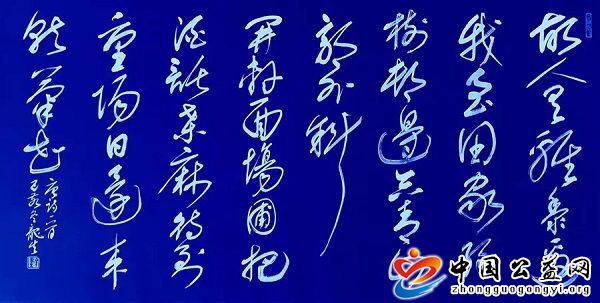 故人具雞黍邀
我至田家緑
樹邨邊合青山
郭外斜
開軒面場圃把
酒話桑麻待到
重陽日還來
就菊花
唐詩一首
中国公益网
zhongguogongyi.org